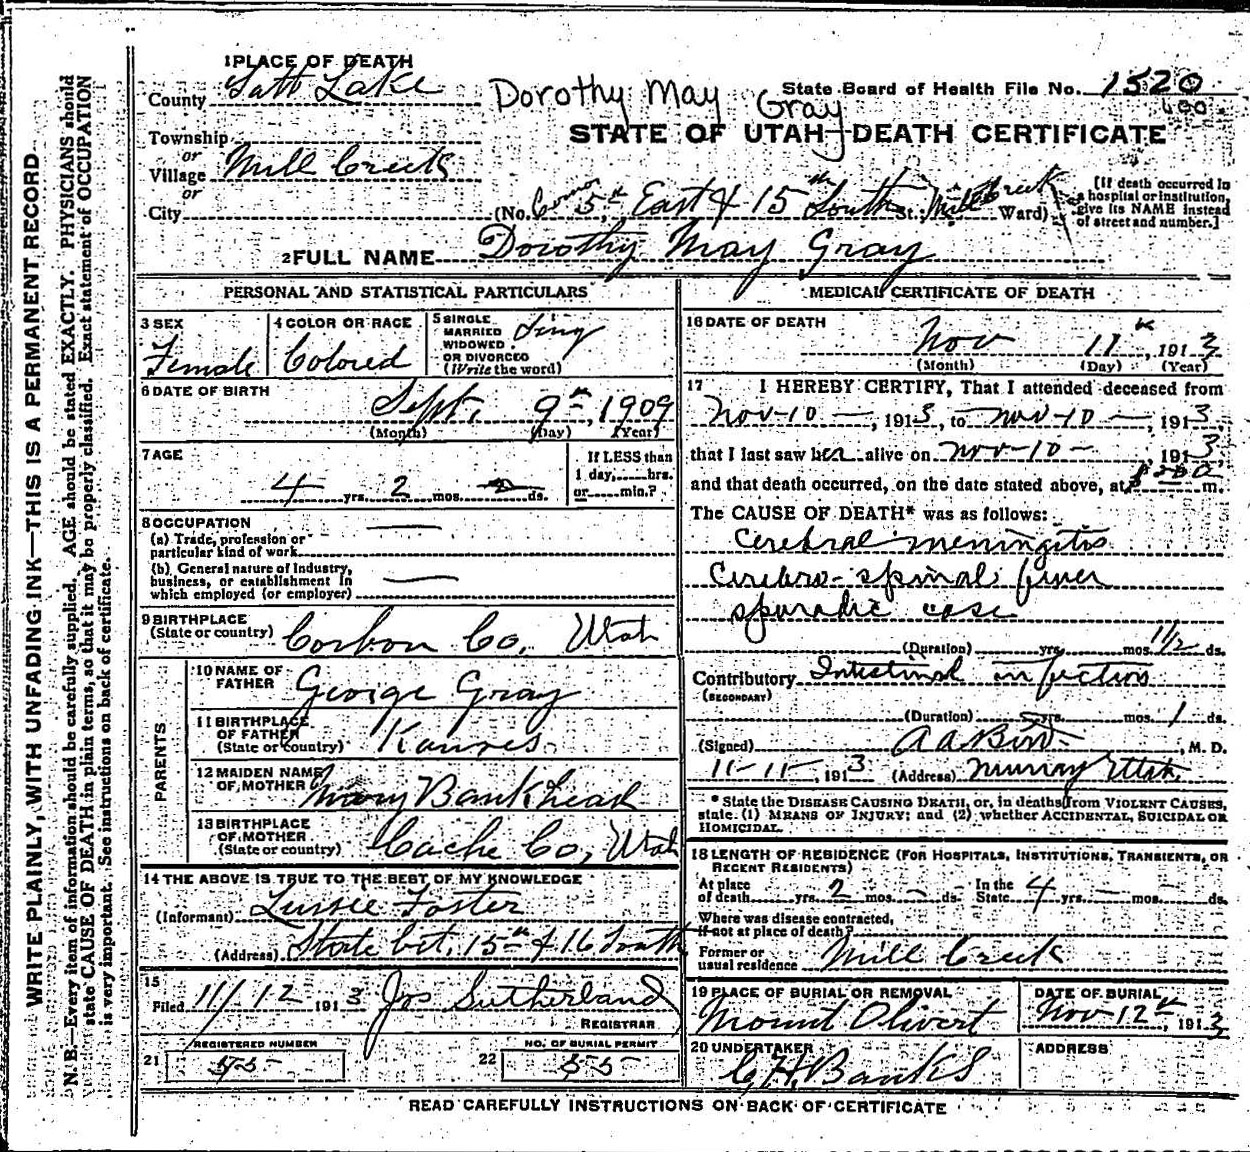 1 PLACE OF DEATH
County Salt Lake
Dorothy May Gray
State Board of Health File No. 1520
Township
or
Village Mill Creek
or
City
STATE OF UTAH—DEATH CERTIFICATE
(No. Corner 5th East & 15th South St.; Mill Creek Ward)
[If death occurred in a hospital or institution, give its NAME instead of street and number.]
2 FULL NAME Dorothy May Gray
PERSONAL AND STATISTICAL PARTICULARS
3 SEX
Female
4 COLOR OR RACE
Colored
5 SINGLE
MARRIED
WIDOWED
OR DIVORCED
(Write the word)
Sing
6 DATE OF BIRTH
Sept. 9th, 1909
(Month) (Day) (Year)
7 AGE
4 yrs. 2 mos. ds.
If LESS than
1 day, hrs.
or min.?
8 OCCUPATION
(a) Trade, profession or
particular kind of work
(b) General nature of industry,
business, or establishment in
which employed (or employer)
9 BIRTHPLACE
(State or country) Corbon Co, Utah
PARENTS
10 NAME OF
FATHER George Gray
11 BIRTHPLACE
OF FATHER
(State or country)
12 MAIDEN NAME
OF MOTHER Mary Bankhead
13 BIRTHPLACE
OF MOTHER
(State or country) Cache Co, Utah
14 THE ABOVE IS TRUE TO THE BEST OF MY KNOWLEDGE
(Informant) Foster
(Address) State bet. 15th & 16 South
15
Filed 11/12 1913 Jos Sutherland
REGISTRAR
REGISTERED NUMBER
21 55
NO. OF BURIAL PERMIT
22 55
MEDICAL CERTIFICATE OF DEATH
16 DATE OF DEATH
Nov 11th, 1913
(Month) (Day) (Year)
17 I HEREBY CERTIFY, That I attended deceased from
Nov-10 —, 1913, to Nov-10 —, 1913,
that I last saw her alive on Nov-10 —, 1913
and that death occurred, on the date stated above, at m.
The CAUSE OF DEATH* was as follows:
Cerebral meningitis
Cerebro-spinal fever
sporadic case
(Duration) yrs. mos. 1 1/2 ds.
Contributory Intestinal infection
(SECONDARY)
(Duration) yrs. mos. 1 ds.
(Signed) , M. D.
11-11-, 1913 (Address) Murray Utah
* State the DISEASE CAUSING DEATH, or, in deaths from VIOLENT CAUSES,
state (1) MEANS OF INJURY; and (2) whether ACCIDENTAL, SUICIDAL OR
HOMICIDAL.
18 LENGTH OF RESIDENCE (FOR HOSPITALS, INSTITUTIONS, TRANSIENTS, OR
RECENT RESIDENTS)
At place
of death yrs. 2 mos. ds. In the State 4 yrs. mos. ds.
Where was disease contracted,
if not at place of death?
Former or
usual residence Mill Creek
19 PLACE OF BURIAL OR REMOVAL
Mount Olivert
DATE OF BURIAL
Nov 12th, 1913
20 UNDERTAKER
C H Banks
ADDRESS
READ CAREFULLY INSTRUCTIONS ON BACK OF CERTIFICATE
WRITE PLAINLY, WITH UNFADING INK—THIS IS A PERMANENT RECORD
N. B.—Every item of information should be carefully supplied. AGE should be stated EXACTLY. PHYSICIANS should
state CAUSE OF DEATH in plain terms, so that it may be properly classified. Exact statement of OCCUPATION
is very important. See instructions on back of certificate.